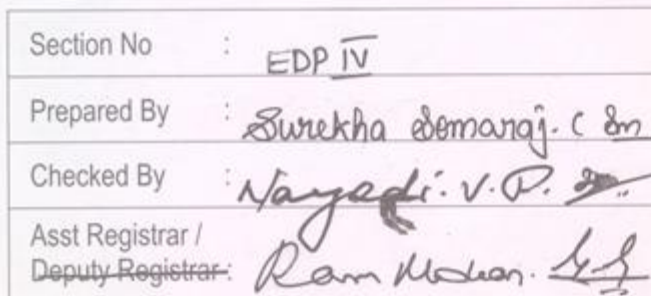 Section No : EDP IV
Prepared By : Surekha Somaraj. C
Checked By : Nayadi. V. P.
Asst Registrar /
Deputy Registrar : Ram Mohan.